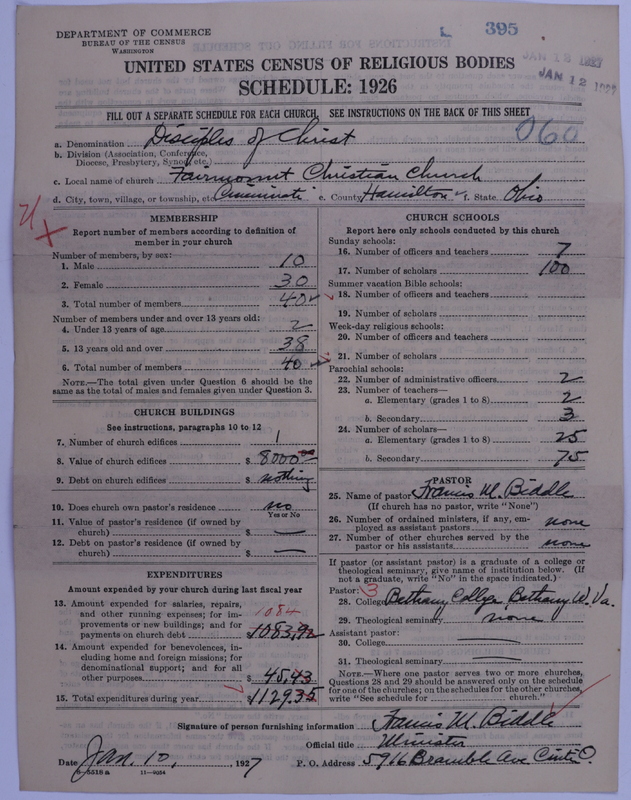 395
DEPARTMENT OF COMMERCE
BUREAU OF THE CENSUS
WASHINGTON
JAN 12 1927
UNITED STATES CENSUS OF RELIGIOUS BODIES
SCHEDULE: 1926
FILL OUT A SEPARATE SCHEDULE FOR EACH CHURCH. SEE INSTRUCTIONS ON THE BACK OF THIS SHEET
060
a. Denomination Disciples of Christ
b. Division (Association, Conference, Diocese, Presbytery, Synod, etc.)
c. Local name of church Fairmount Christian Church
d. City, town, village, or township, etc. Cincinnati e. County Hamilton f. State Ohio
MEMBERSHIP
Report number of members according to definition of
member in your church
Number of members, by sex:
1. Male 10
2. Female 30
3. Total number of members 40
Number of members under and over 13 years old:
4. Under 13 years of age 2
5. 13 years old and over 38
6. Total number of members 40
NOTE.—The total given under Question 6 should be
the same as the total of males and females given under Question 3.
CHURCH BUILDINGS
See instructions, paragraphs 10 to 12
7. Number of church edifices 1
8. Value of church edifices $ 8000.00
9. Debt on church edifices $ nothing
10. Does church own pastor's residence? no
Yes or No
11. Value of pastor's residence (if owned by
church) $ —
12. Debt on pastor's residence (if owned by
church) $ —
EXPENDITURES
Amount expended by your church during last fiscal year
13. Amount expended for salaries, repairs,
and other running expenses; for im-
provements or new buildings; and for
payments on church debt $ 1083.92
1084
14. Amount expended for benevolences, in-
cluding home and foreign missions; for
denominational support; and for all
other purposes $ 45.43
15. Total expenditures during year $ 1129.35
CHURCH SCHOOLS
Report here only schools conducted by this church
Sunday schools:
16. Number of officers and teachers 7
17. Number of scholars 100
Summer vacation Bible schools:
18. Number of officers and teachers
19. Number of scholars
Week-day religious schools:
20. Number of officers and teachers
21. Number of scholars
Parochial schools:
22. Number of administrative officers 2
23. Number of teachers—
a. Elementary (grades 1 to 8) 2
b. Secondary 3
24. Number of scholars—
a. Elementary (grades 1 to 8) 25
b. Secondary 75
PASTOR
25. Name of pastor Francis M. Biddle
(If church has no pastor, write "None")
26. Number of ordained ministers, if any, em-
ployed as assistant pastors none
27. Number of other churches served by the
pastor or his assistants none
If pastor (or assistant pastor) is a graduate of a college or
theological seminary, give name of institution below. (If
not a graduate, write "No" in the space indicated.)
Pastor: 3
28. College Bethany College Bethany W. Va.
29. Theological seminary none
Assistant pastor:
30. College
31. Theological seminary
NOTE.—Where one pastor serves two or more churches,
Questions 28 and 29 should be answered only on the schedule
for one of the churches; on the schedules for the other churches,
write "See schedule for ____ church."
Signature of person furnishing information Francis M. Biddle
Official title Minister
Date Jan. 10, 1927 P. O. Address 5916 Bramble Ave Cinti O.
8—5518a 11—9054